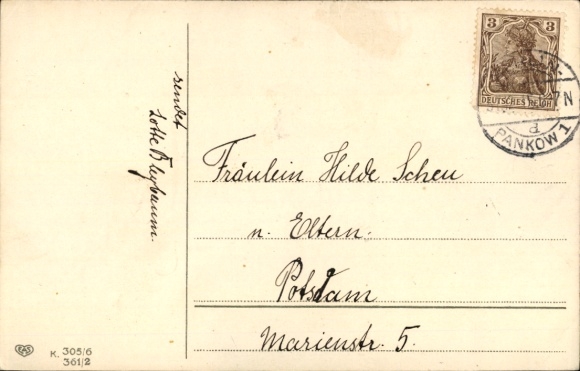 sendet
Lotte Bleybaum.
3 3
DEUTSCHES REICH
7N
a
PANKOW 1
Fräulein Hilde Scheu
u. Eltern.
Potsdam
Marienstr. 5.
EAS
K. 305/6
361/2